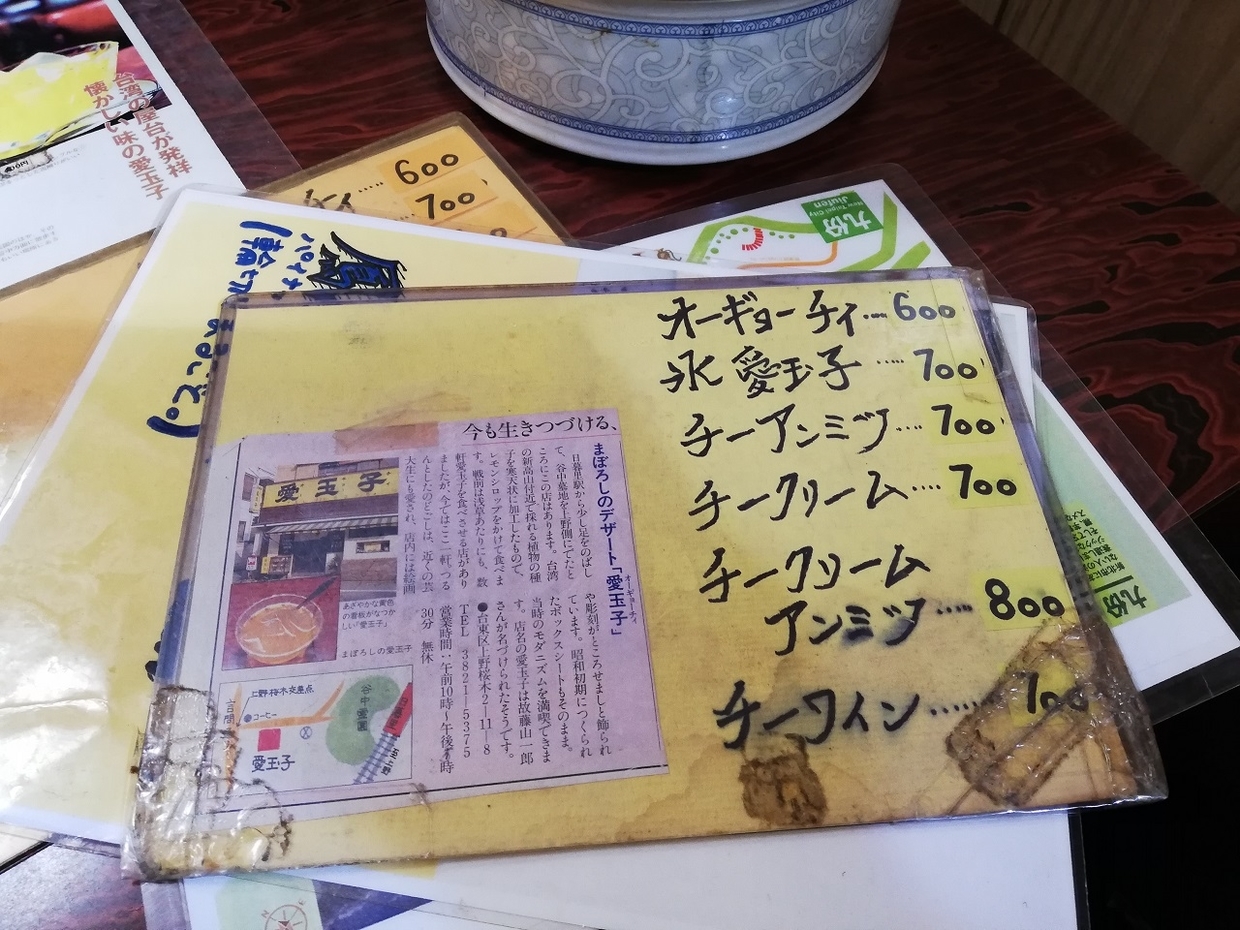 台湾の屋台が発祥
懐かしい味の愛玉子
チィ‥‥‥600
700
九份
New Taipei City
Jiufen
オーギョーチィ‥‥600
氷愛玉子‥‥‥700
チーアンミツ‥‥700
チークリーム‥‥700
チークリーム
アンミツ‥‥800
チーワイン‥‥‥
今も生きつづける、
まぼろしのデザート「愛玉子」
オーギョーチィ
日暮里駅から少し足をのばし
て、谷中墓地を上野側にでたと
ころにこの店はあります。台湾
の新高山付近で採れる植物の種
子を寒天状に加工したもので、
レモンシロップをかけて食べま
す。戦前は浅草あたりにも、数
軒愛玉子を食べさせる店があり
ましたが、今ではここ一軒。つる
んとしたのどこしは、近くの芸
大生にも愛され、店内には絵画
や彫刻がところせましと飾られ
ています。昭和初期につくられ
たボックスシートもそのまま。
当時のモダニズムを満喫できま
す。店名の愛玉子は故藤山一郎
さんが名づけられたそうです。
●台東区上野桜木2-11-8
TEL 3821-5375
営業時間:午前10時~午後
30分 無休
愛玉子
あざやかな黄色
の看板がなつか
しい「愛玉子」
まぼろしの愛玉子
上野桜木交差点
言問
●コーヒー
愛玉子
谷中霊園
九份